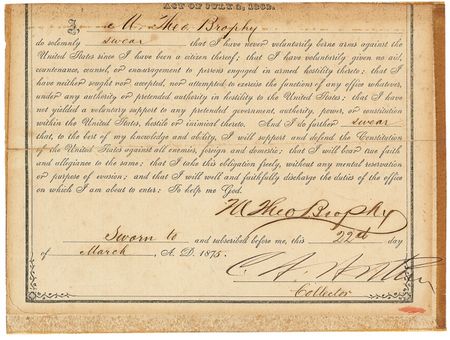 ACT OF JULY 2, 1862.
I, M. Theo. Brophy
do solemnly swear that I have never voluntarily borne arms against the
United States since I have been a citizen thereof; that I have voluntarily given no aid,
countenance, counsel, or encouragement to persons engaged in armed hostility thereto; that I
have neither sought nor accepted, nor attempted to exercise the functions of any office whatever,
under any authority or pretended authority in hostility to the United States; that I have
not yielded a voluntary support to any pretended government, authority, power, or constitution
within the United States, hostile or inimical thereto. And I do further swear
that, to the best of my knowledge and ability, I will support and defend the Constitution
of the United States against all enemies, foreign and domestic; that I will bear true faith
and allegiance to the same; that I take this obligation freely, without any mental reservation
or purpose of evasion; and that I will well and faithfully discharge the duties of the office
on which I am about to enter: So help me God.
M Theo Brophy
Sworn to and subscribed before me, this 22d day
of March, A. D. 1875.
Collector